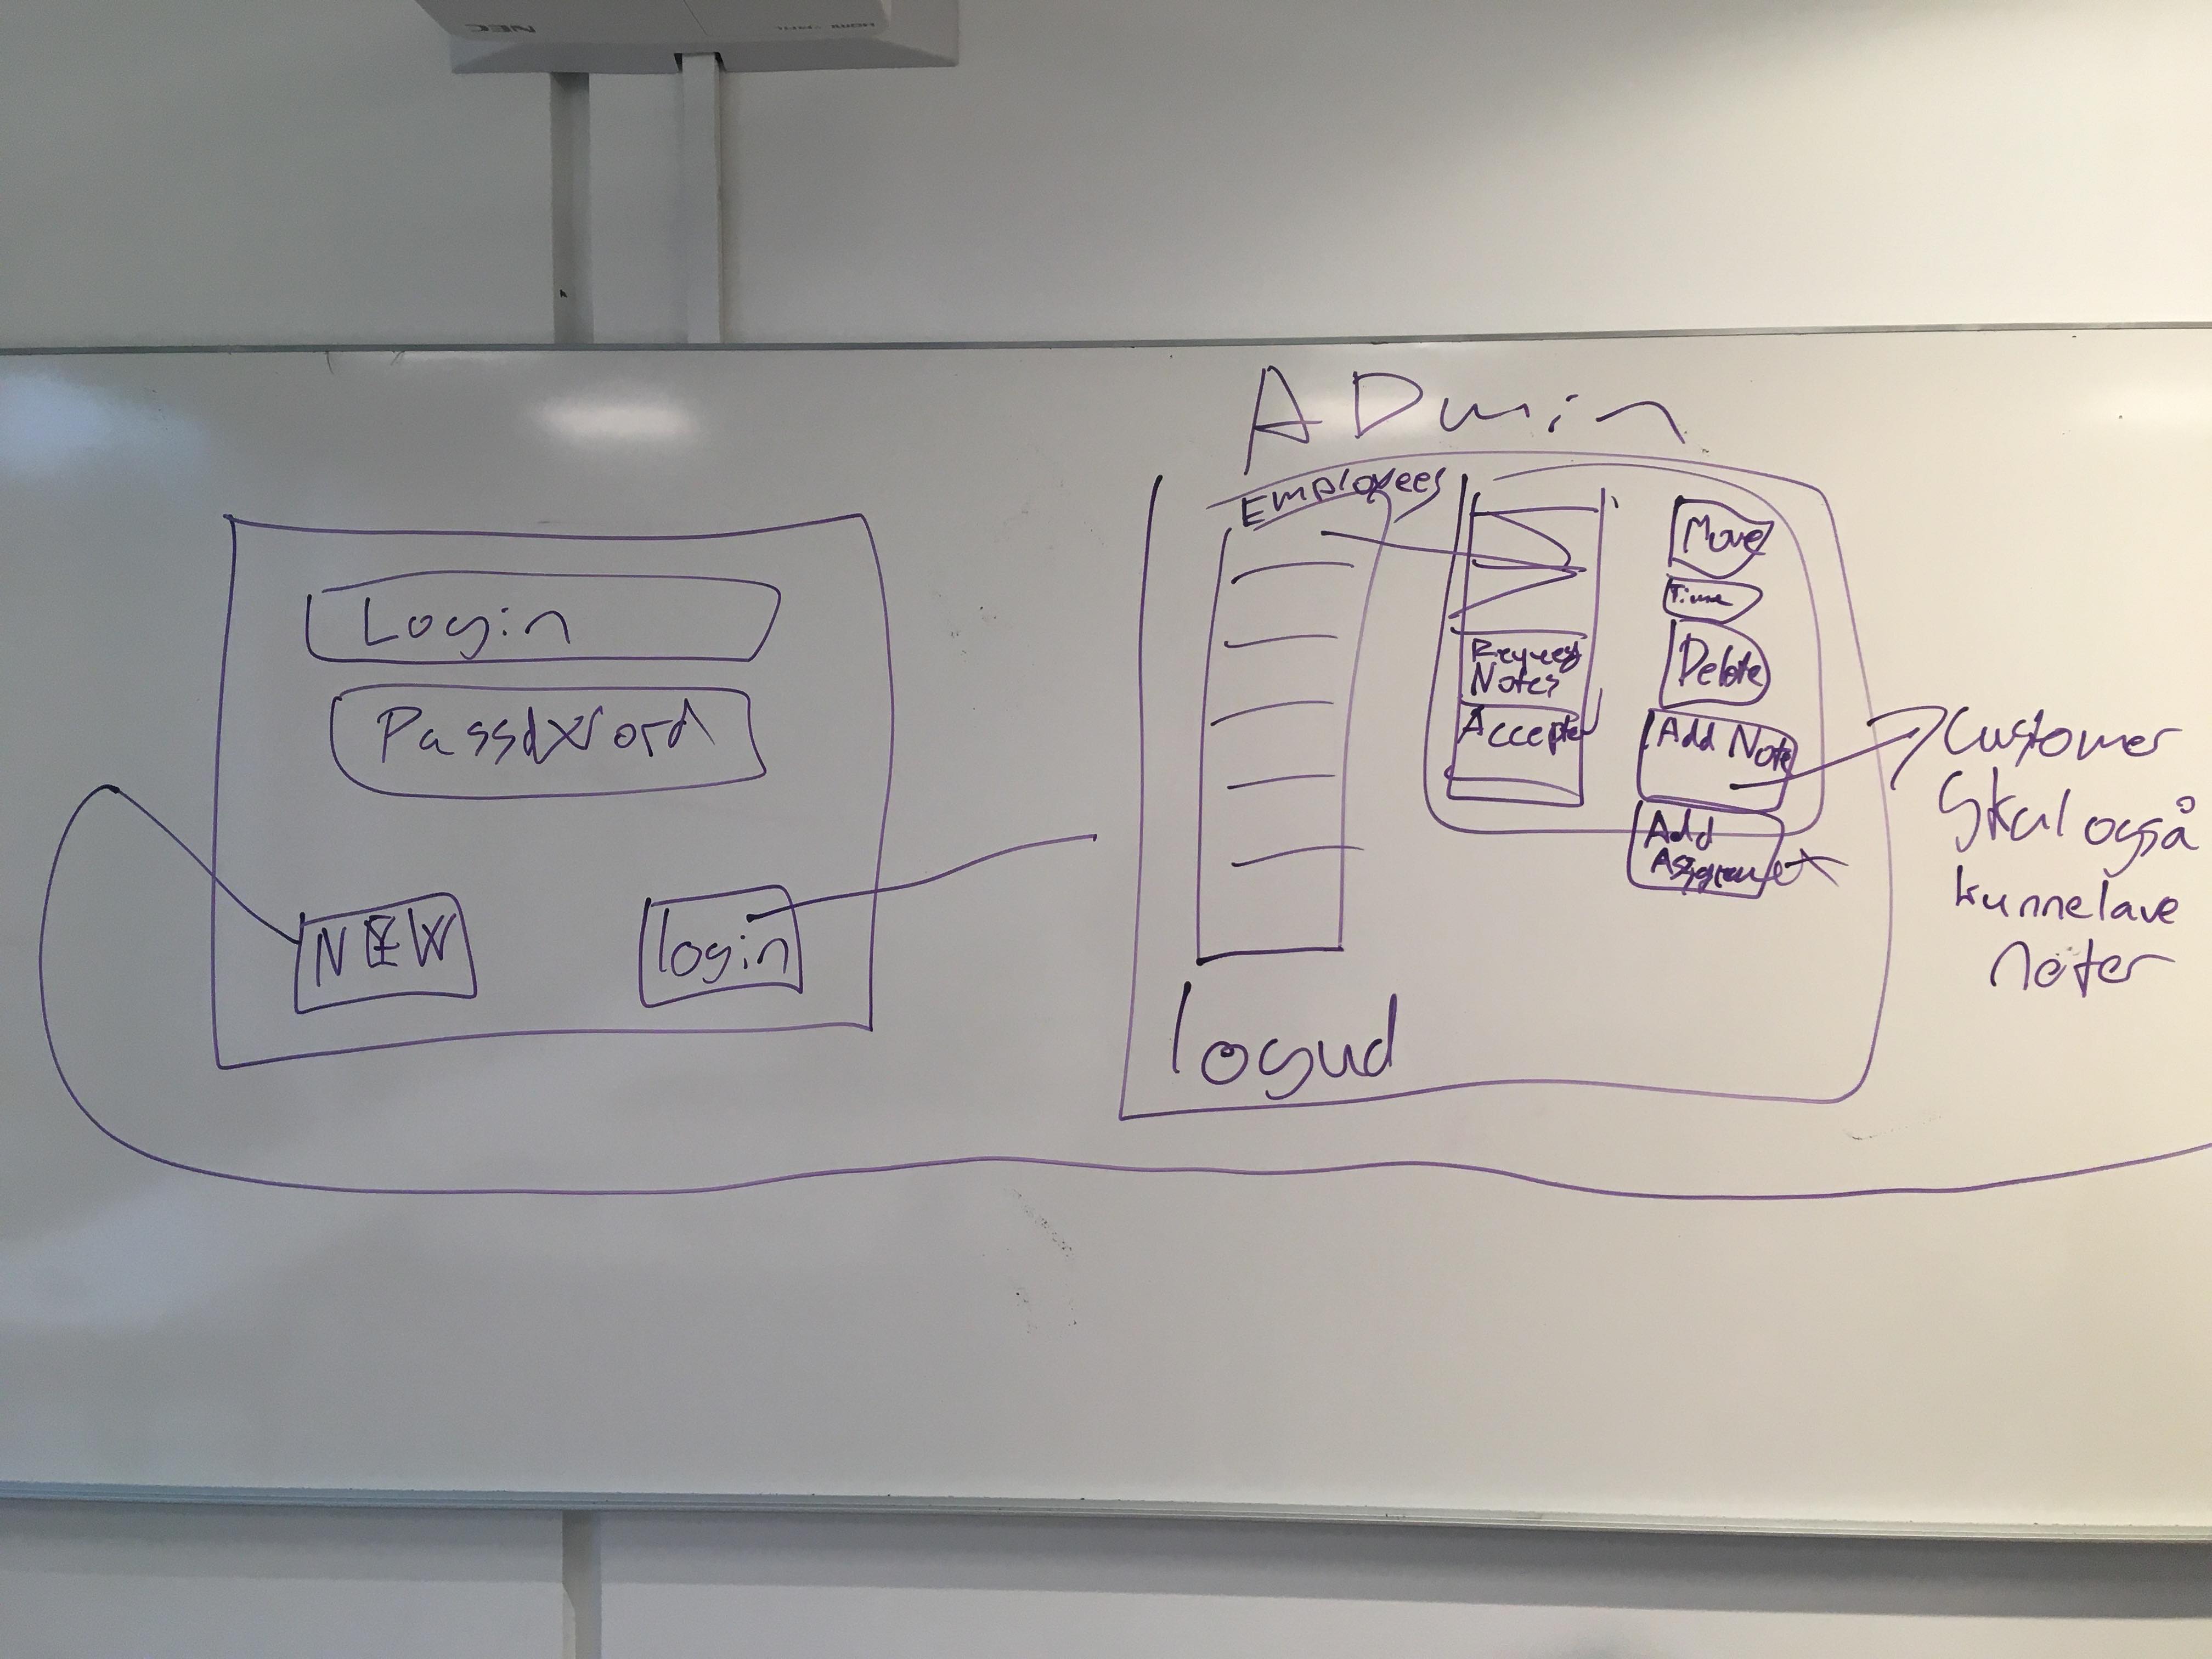 NEC
Login
Passdword
NEW
login
ADmin
Employees
Request
Notes
Accepter
Move
Time
Delete
Add Note
Add
logud
Customer
Skal også
kunne lave
noter